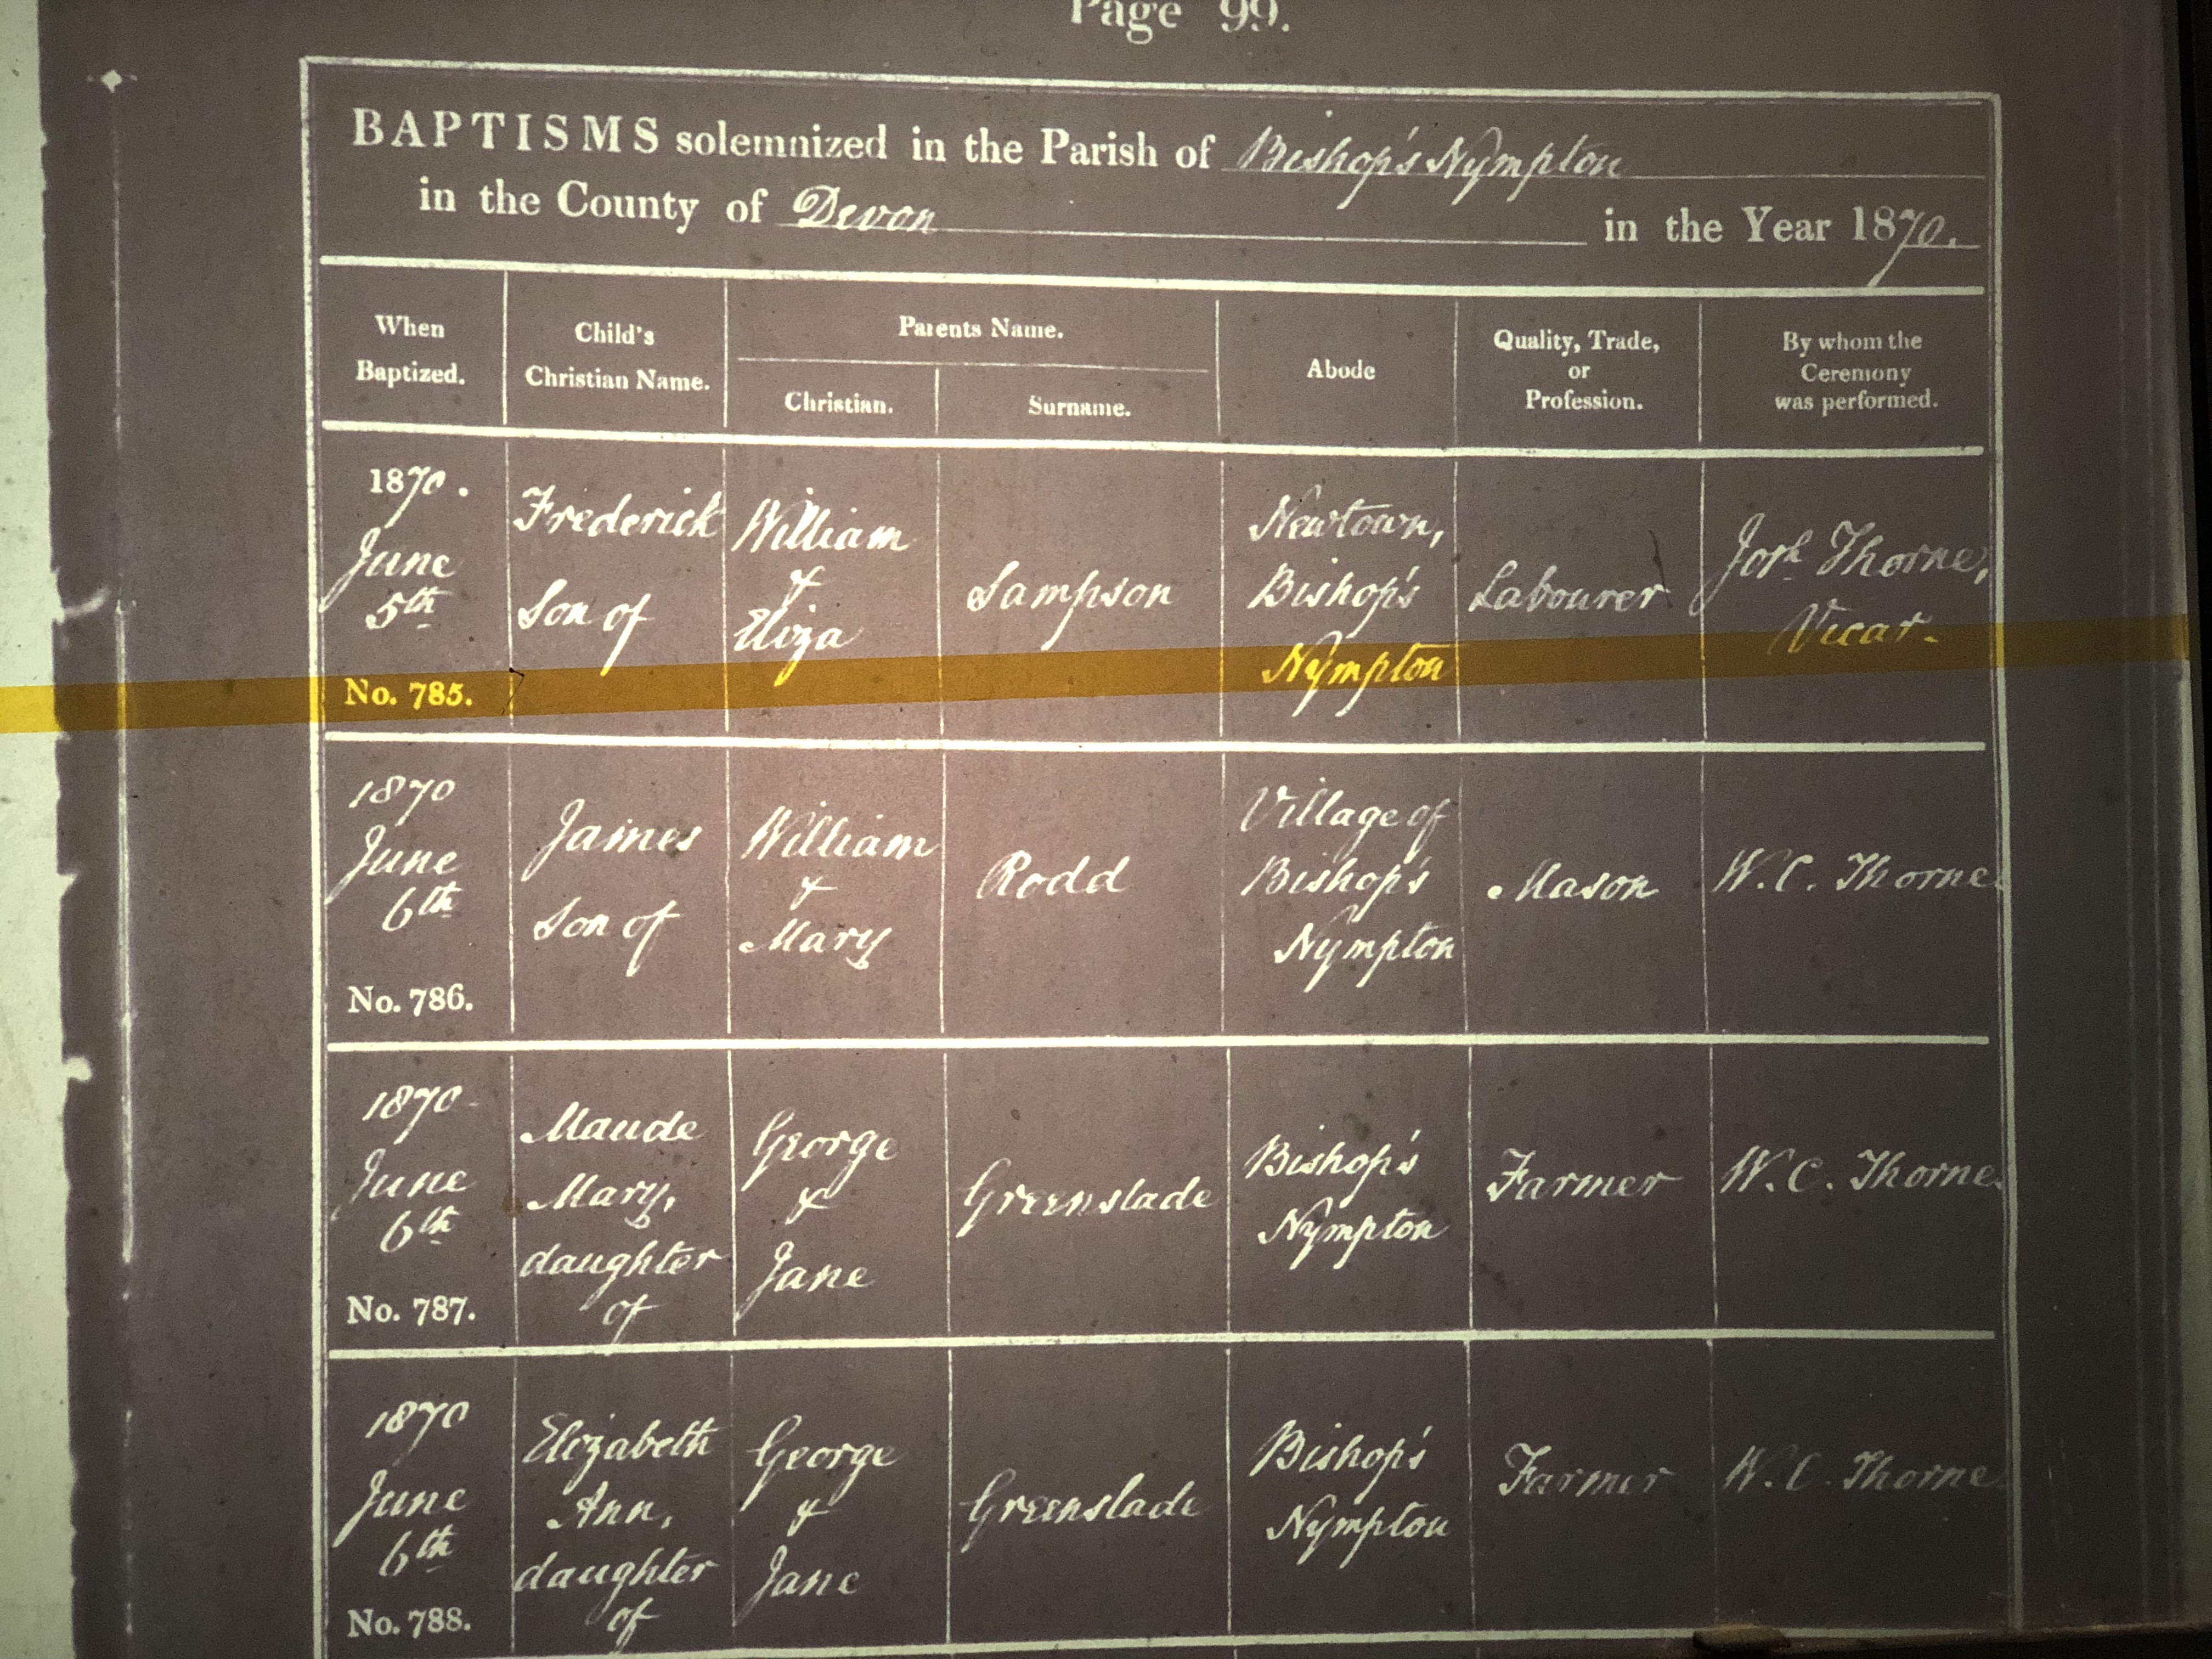 Page 99.
BAPTISMS solemnized in the Parish of Bishop's Nympton
in the County of Devon in the Year 1870.
When Baptized.
Child's Christian Name.
Parents Name.
Christian.
Surname.
Abode
Quality, Trade, or Profession.
By whom the Ceremony was performed.
1870.
June
5th
No. 785.
Frederick
Son of
William
&
Eliza
Sampson
Newtown,
Bishop's
Nympton
Labourer
Josh Thorne,
Vicar.
1870
June
6th
No. 786.
James
Son of
William
&
Mary
Rodd
Village of
Bishop's
Nympton
Mason
W. C. Thorne.
1870
June
6th
No. 787.
Maude
Mary,
daughter
of
George
&
Jane
Greenslade
Bishop's
Nympton
Farmer
W. C. Thorne.
1870
June
6th
No. 788.
Elizabeth
Ann,
daughter
of
George
&
Jane
Greenslade
Bishop's
Nympton
Farmer
W. C. Thorne